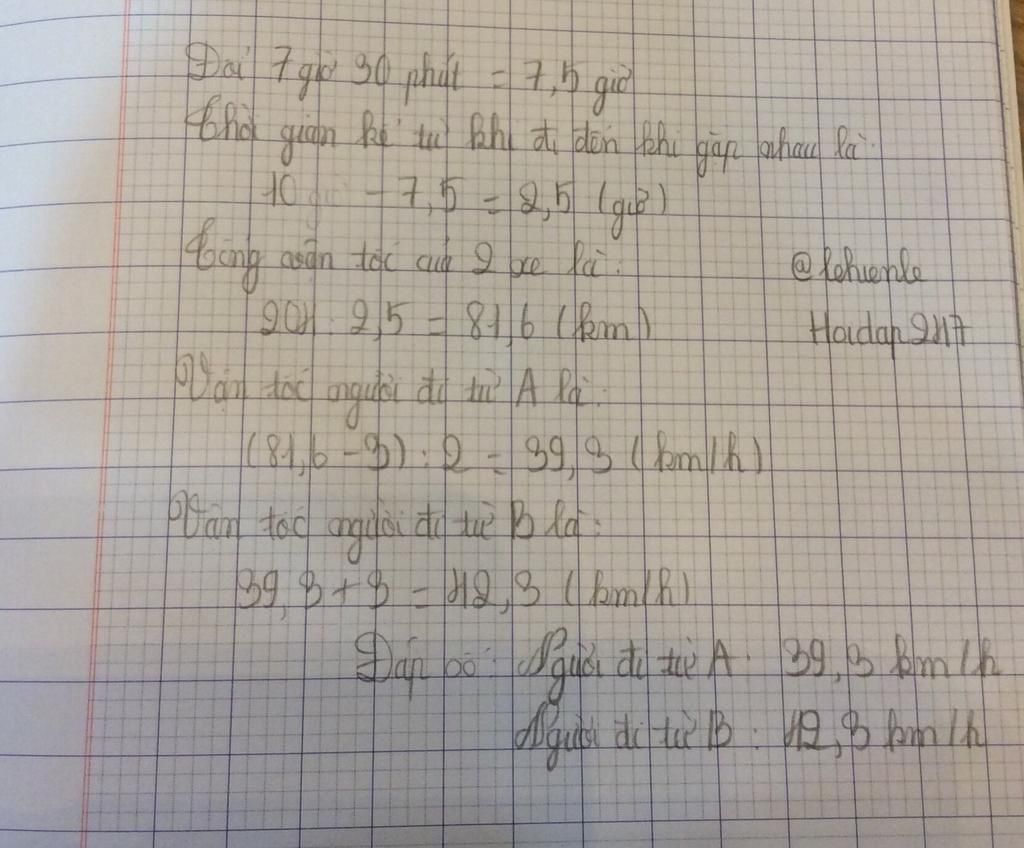 Đổi 7 giờ 30 phút = 7,5 giờ
Thời gian kể từ khi đi đến khi gặp nhau là:
10 giờ - 7,5 = 2,5 (giờ)
Tổng vận tốc của 2 xe là:
204 : 2,5 = 81,6 (km)
Vận tốc người đi từ A là:
(81,6 - 3) : 2 = 39,3 (km/h)
Vận tốc người đi từ B là:
39,3 + 3 = 42,3 (km/h)
Đáp số: Người đi từ A: 39,3 km/h
Người đi từ B: 42,3 km/h
@lehienle
Hoidap247